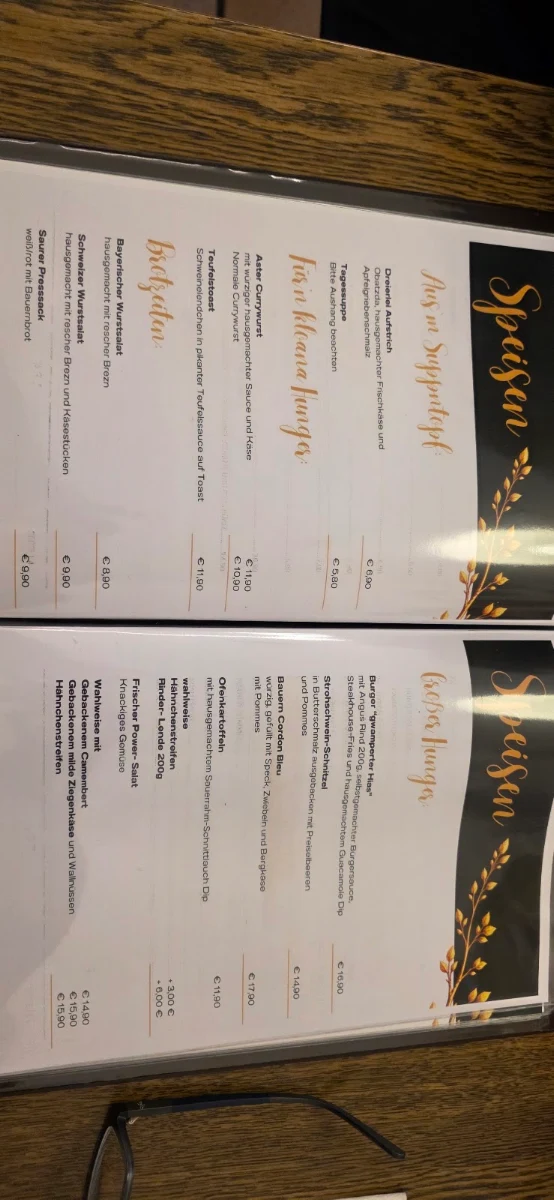 Speisen
Aus'm Suppntopf:
Dreierlei Aufstrich
Obatzda, hausgemachter Frischkäse und
Apfelgriebenschmalz
€ 6,90
Tagessuppe
Bitte Aushang beachten
€ 5,80
Für'n kloana Hunger:
Aster Currywurst
mit würziger hausgemachter Sauce und Käse
€ 11,90
Normale Currywurst
€ 10,90
Teufelstoast
Schweinelendchen in pikanter Teufelssauce auf Toast
€ 11,90
Brotzeiten:
Bayerischer Wurstsalat
hausgemacht mit rescher Brezn
€ 8,90
Schweizer Wurstsalat
hausgemacht mit rescher Brezn und Käsestücken
€ 9,90
Saurer Presssack
weiß/rot mit Bauernbrot
€ 9,90
Speisen
Großer Hunger
Burger "gwamperter Hias"
mit Angus Rind 200g, selbstgemachter Burgersauce,
Steakhouse-Fries und hausgemachtem Guacamole Dip
€ 16,90
Strohschwein-Schnitzel
in Butterschmalz ausgebacken mit Preiselbeeren
und Pommes
€ 14,90
Bauern Cordon Bleu
würzig, gefüllt mit Speck, Zwiebeln und Bergkäse
mit Pommes
€ 17,90
Ofenkartoffeln
mit hausgemachtem Sauerrahm-Schnittlauch Dip
€ 11,90
wahlweise
Hähnchenstreifen
+ 3,00 €
Rinder- Lende 200g
+ 6,00 €
Frischer Power- Salat
Knackiges Gemüse
Wahlweise mit
Gebackenem Camembert
€ 14,90
Gebackenem milde Ziegenkäse und Wallnüssen
€ 15,90
Hähnchenstreifen
€ 15,90